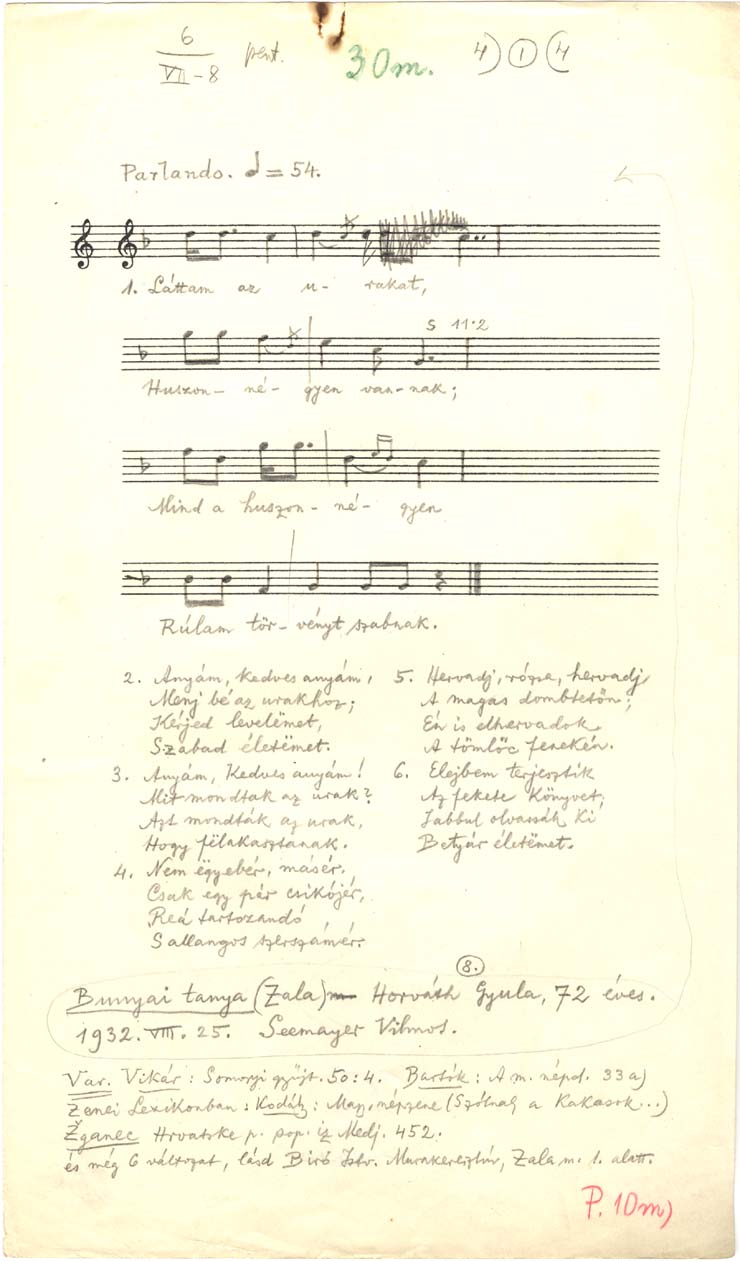 6
VII-8
pent.
30m.
4) 1 (4
Parlando. = 54.
1. Láttam az u- rakat,
s 11·2
Huszon- né- gyen van-nak;
Mind a huszon- né- gyen
Rúlam tör- vényt szabnak.
2. Anyám, kedves anyám,
Menj bé az urakhoz;
Kérjed levelëmet,
Szabad életëmet.
3. Anyám, Kedves anyám!
Mit mondtak az urak?
Azt mondták az urak,
Hogy fëlakasztanak.
4. Nem ëgyebér, másér,
Csak egy pár csikójér,
Reá tartozandó
Sallangos szerszámér.
5. Hervadj, rózsa, hervadj
A magas dombtetőn;
Én is elhervadok
A tömlöc fenekén.
6. Elejbem terjesztik
Az fekete Könyvet,
Jabbul olvassák ki
Betyár életëmet.
8.
Bunyai tanya (Zala) Horváth Gyula, 72 éves.
1932. VIII. 25. Seemayer Vilmos.
Var. Vikár: Somogyi gyűjt. 50:4. Bartók: A m. népd. 33a)
Zenei Lexikonban: Kodály: Magy. népzene (Szólnak a Kakasok...)
Žganec Hrvatske p. pop. iz Medj. 452.
és még 6 változat, lásd Biró Istv. Murakeresztúr, Zala m. 1. alatt.
P. 10m)